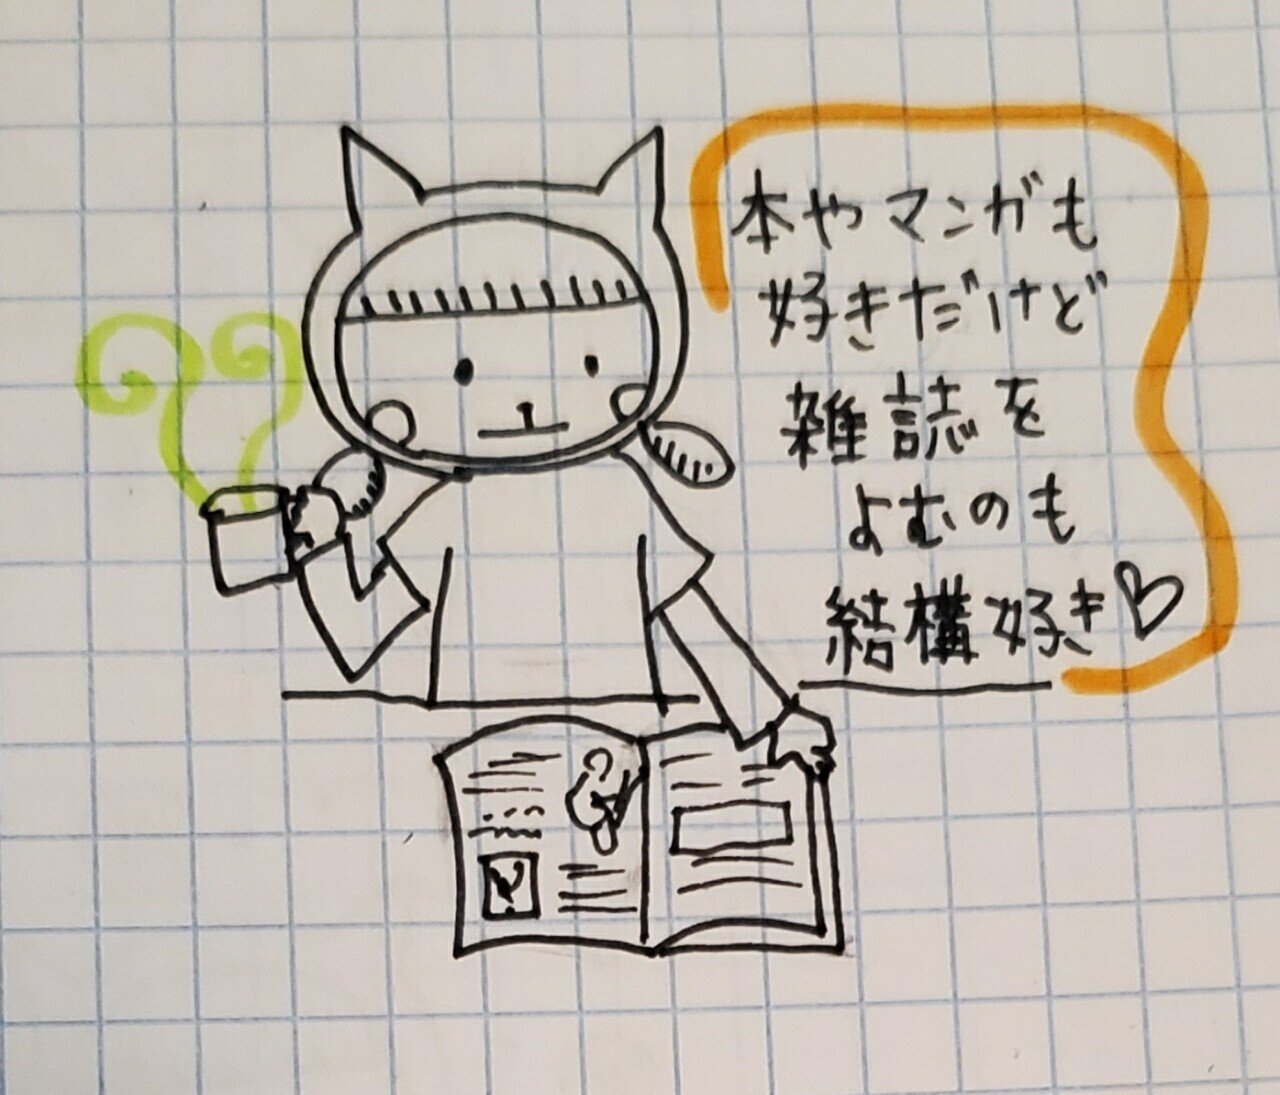 本やマンガも
好きだけど
雑誌を
よむのも
結構好き♡